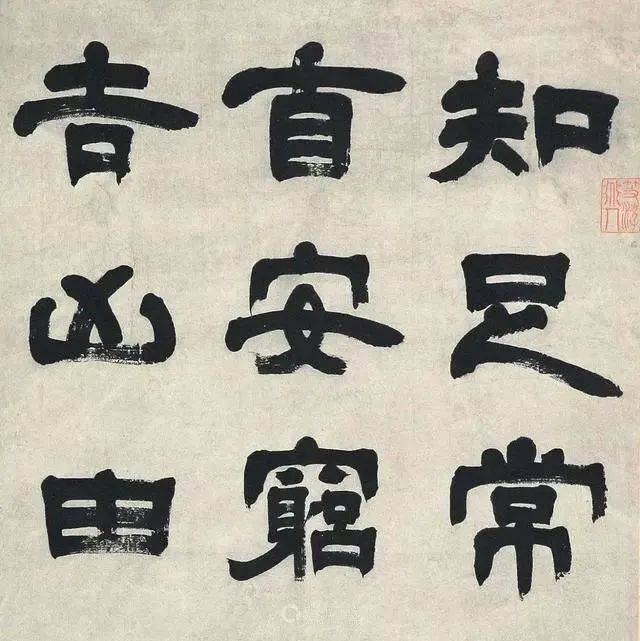 知足常
安窮
吉凶由